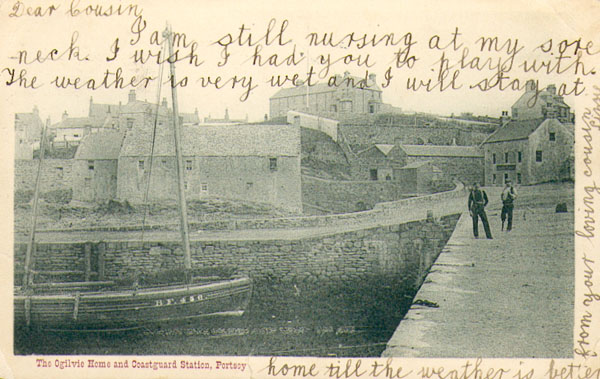 Dear Cousin
I am still nursing at my sore
neck. I wish I had you to play with.
The weather is very wet and I will stay at
home till the weather is better
from your loving cousin
BF 446
The Ogilvie Home and Coastguard Station, Portsoy